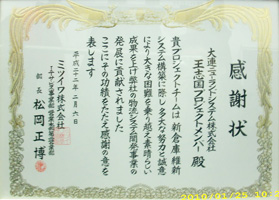 感謝状
大連ニューランドシステム株式会社
王志国プロジェクトメンバー殿
貴プロジェクトチームは新倉庫維新
システム構築に際し多大な努力と誠意
により大きな困難を乗り越え素晴らしい
成果を上げ弊社の物流システム開発事業の
発展に貢献されました
ここにその功績をたたえ感謝の意を
表します
平成二十二年二月六日
ミツイワ株式会社
部長 松岡正博